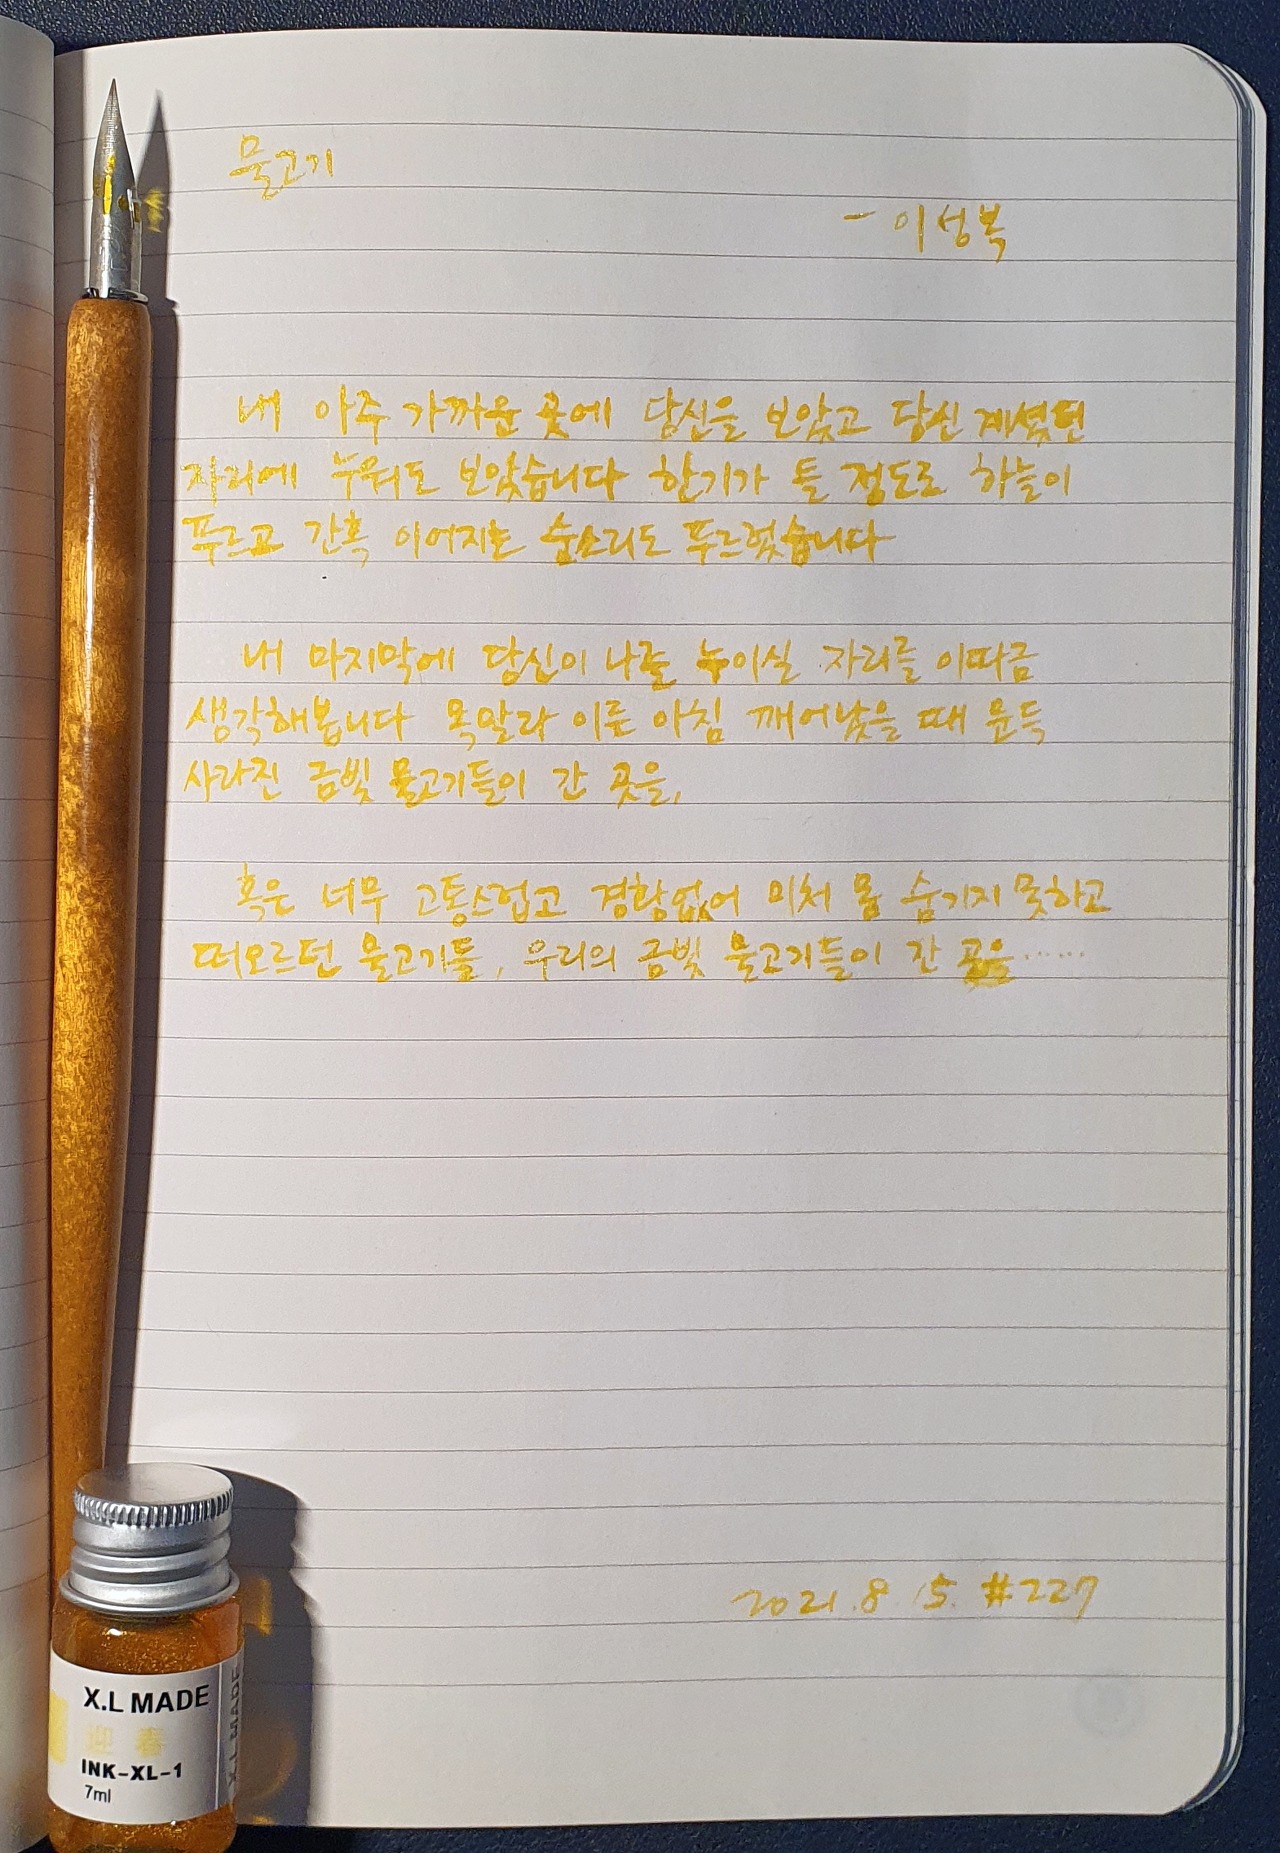 물고기
- 이성복
내 아주 가까운 곳에 당신을 보았고 당신 계셨던
자리에 누워도 보았습니다 한기가 들 정도로 하늘이
푸르고 간혹 이어지는 숨소리도 푸르렀습니다
내 마지막에 당신이 나를 누이실 자리를 이따금
생각해봅니다 목말라 이른 아침 깨어났을 때 문득
사라진 금빛 물고기들이 간 곳을,
혹은 너무 고통스럽고 경황없어 미처 몸 숨기지 못하고
떠오르던 물고기들, 우리의 금빛 물고기들이 간 곳을……
2021.8.15. #227
X.L MADE
迎春
INK-XL-1
7ml
X.L MADE